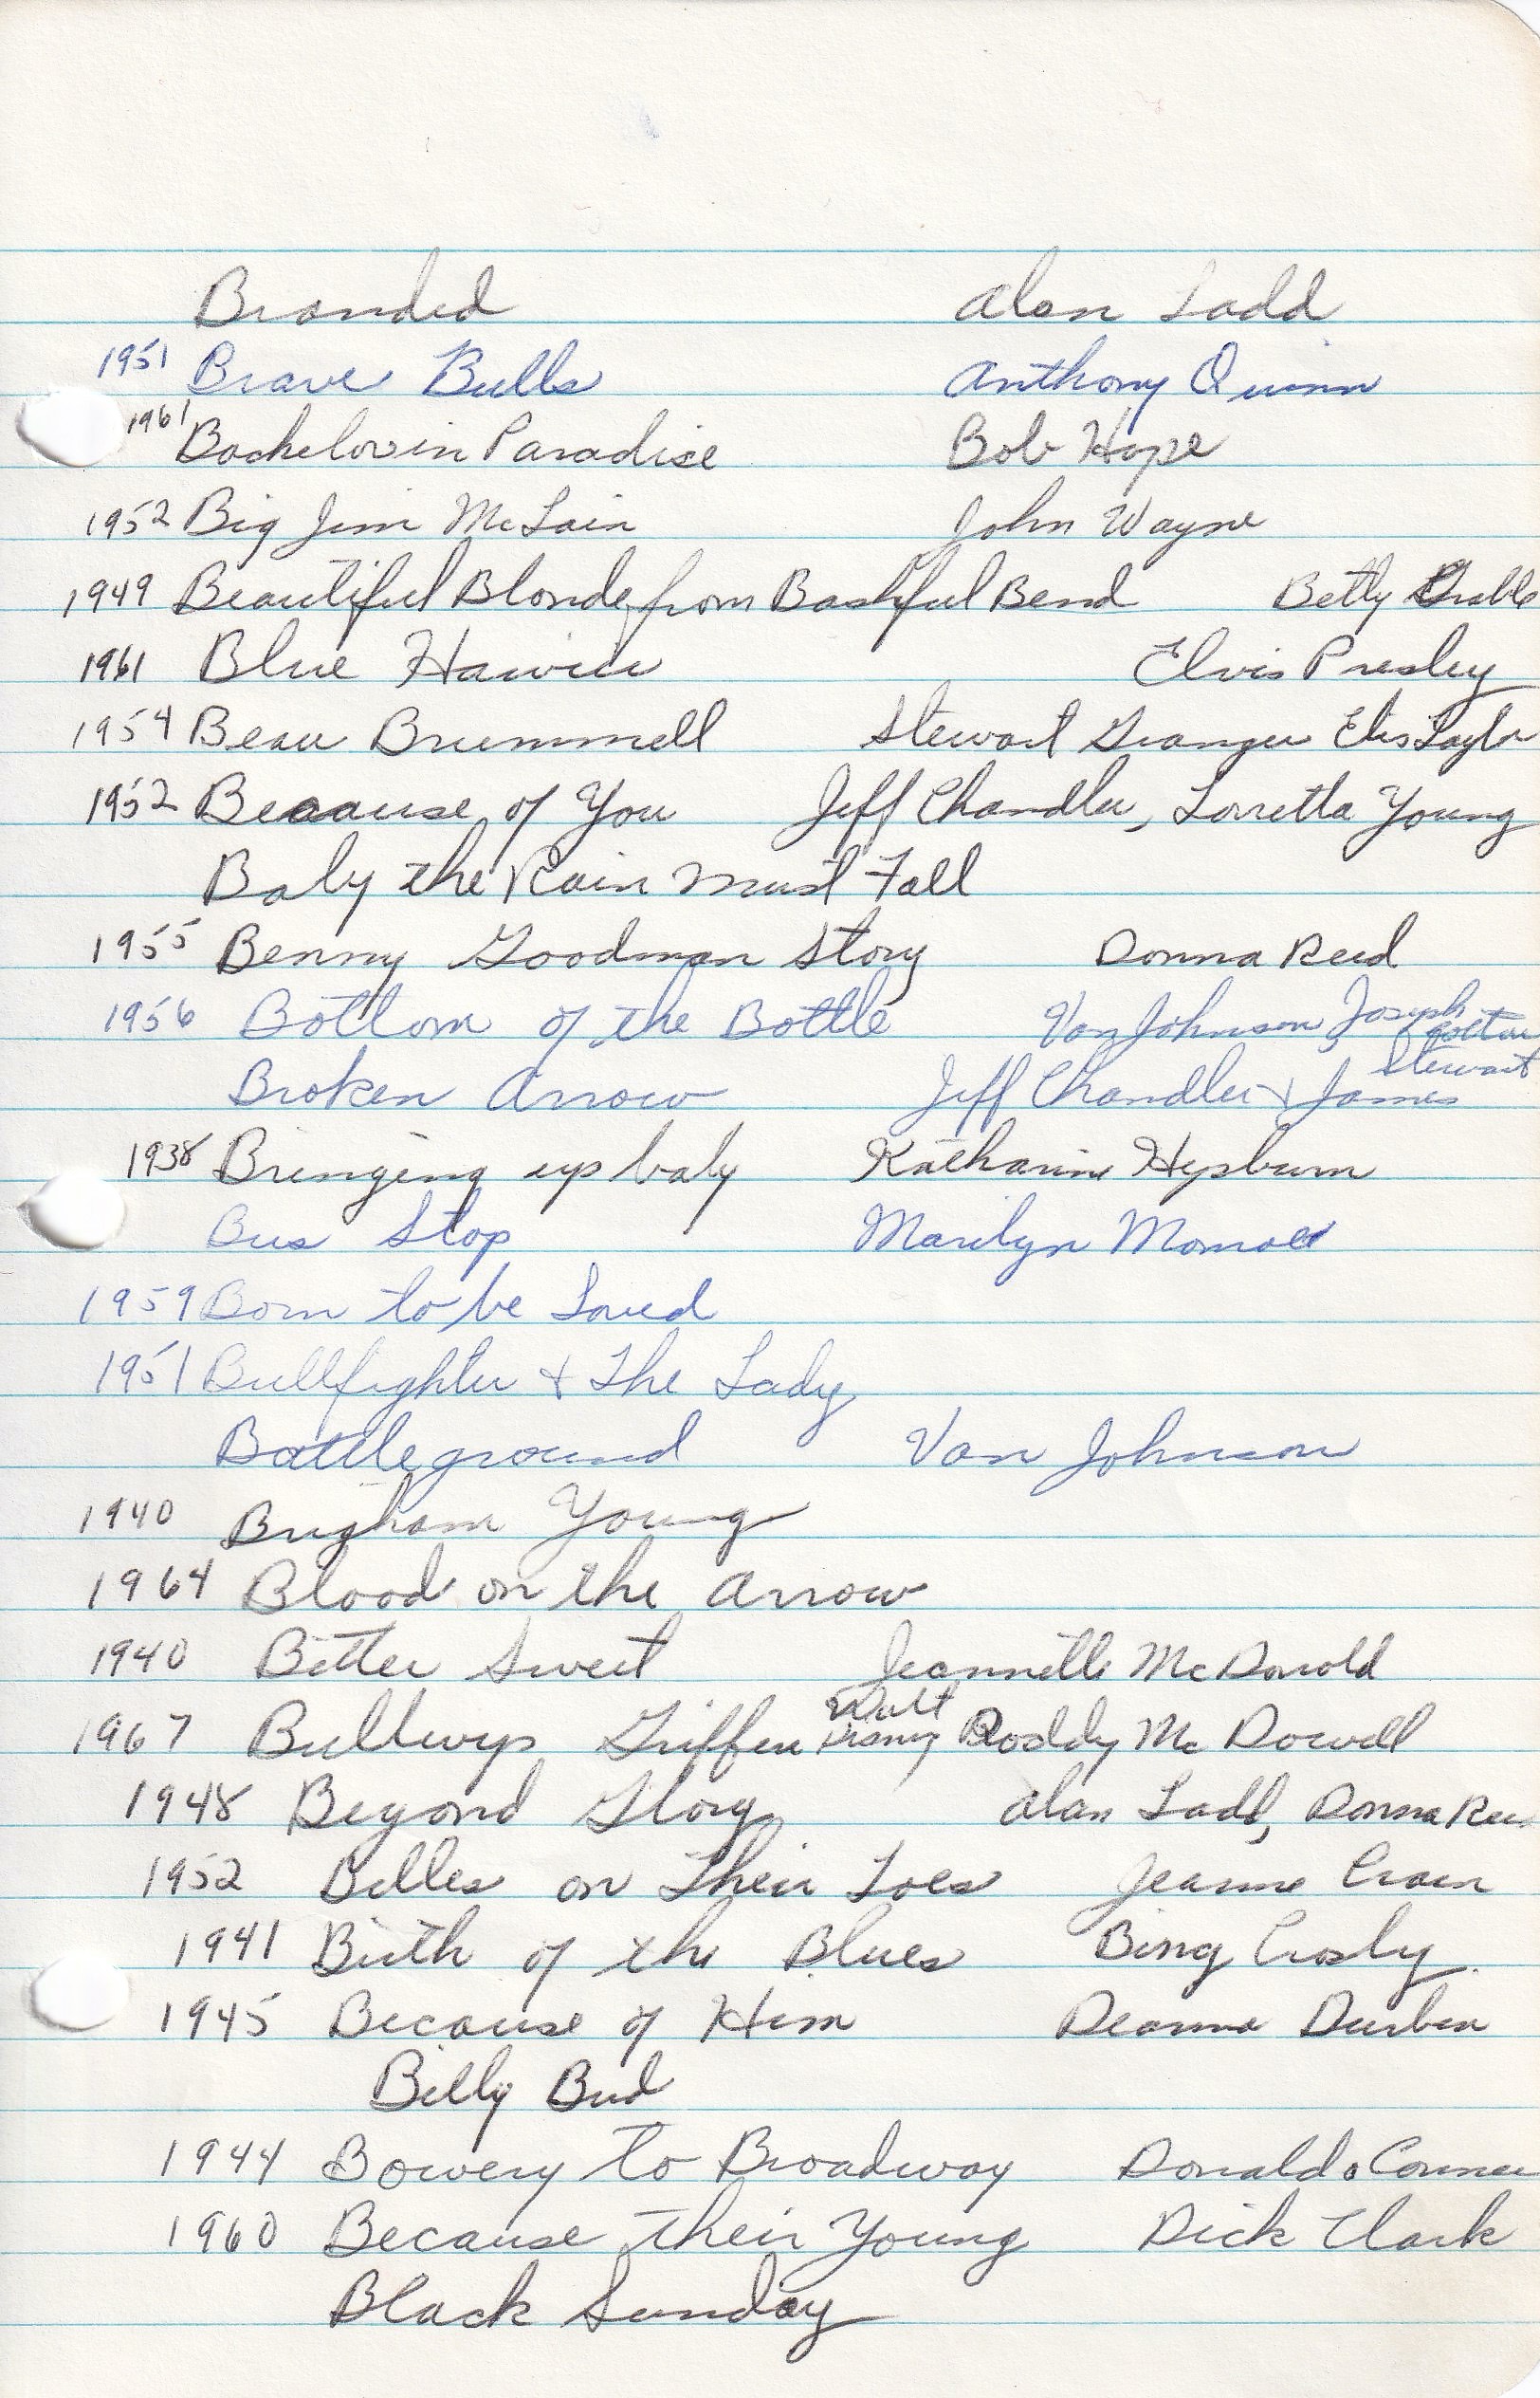 Branded Alan Ladd
1951 Brave Bulls Anthony Quinn
1961 Bachelor in Paradise Bob Hope
1952 Big Jim McLain John Wayne
1949 Beautiful Blonde from Bashful Bend Betty Grable
1961 Blue Hawii Elvis Presley
1954 Beau Brummell Stewart Granger Elis Taylor
1952 Because of You Jeff Chandler, Lorretta Young
Baby the Rain Must Fall
1955 Benny Goodman Story Donna Reed
1956 Bottom of the Bottle Van Johnson & Joseph Cotten
Broken Arrow Jeff Chandler & James Stewart
1938 Bringing up baby Katharine Hepburn
Bus Stop Marilyn Monroe
1959 Born to be Loved
1951 Bullfighter & The Lady
Battleground Van Johnson
1940 Brigham Young
1964 Blood on the Arrow
1940 Bitter Sweet Jeannette McDonald
1967 Bullwyp Griffen Walt Disney Roddy McDowell
1948 Beyond Glory Alan Ladd, Donna Reed
1952 Belles on Their Toes Jeanne Crain
1941 Birth of the Blues Bing Crosby
1945 Because of Him Deanna Durbin
Billy Bud
1944 Bowery to Broadway Donald o Conner
1960 Because their Young Dick Clark
Black Sunday